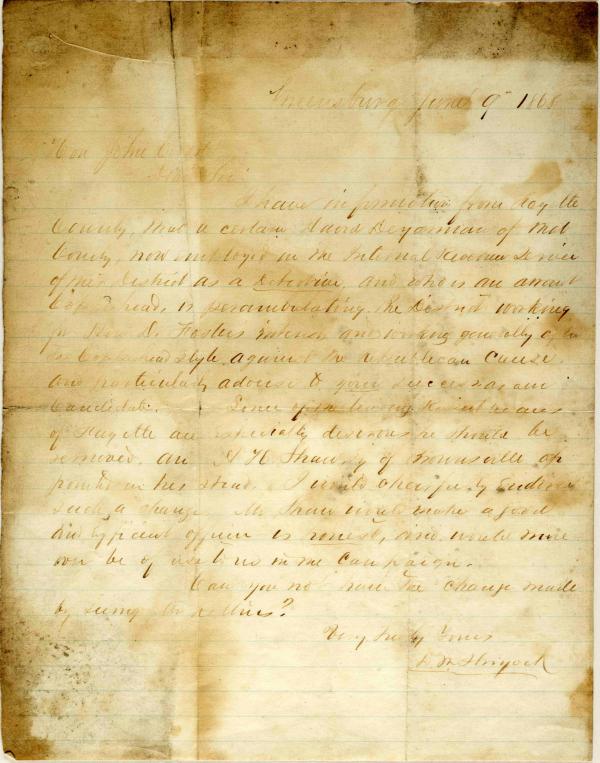 Greensburg June 9th 1868
Hon John Covode
Dear Sir
I have information from Fayette
County, that a certain David Deyarman of that
County, now employed in the Internal Revenue Service
of this District as a Detective, and who is an arrant
Copperhead, is perambulating the District working
in Hon. Fosters interest and working generally
Copperhead style against the Republican cause.
and particularly adverse to your success as our
Candidate. Some of the leading Republicans
of Fayette are especially desirous he should be
removed. and A H Shaw of Brownsville ap
pointed in his stead. I would cheerfully Endorse
such a change. Mr Shaw would make a good
and efficient officer is honest, and would more
over be of use to us in the Campaign.
Can you not have the change made
by seeing Mr Rollins?
Very truly Yours
D. M.